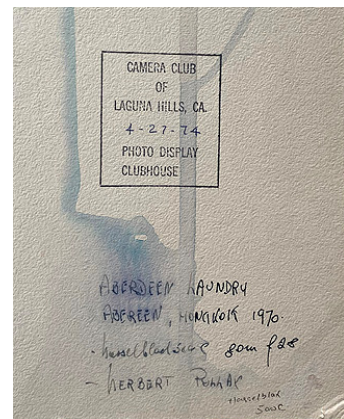 CAMERA CLUB
OF
LAGUNA HILLS, CA.
4-27-74
PHOTO DISPLAY
CLUBHOUSE
ABERDEEN LAUNDRY
ABEREEN, HONGKOK 1970.
80m f28
- HERBERT POLLAK
Hasselblad
500C